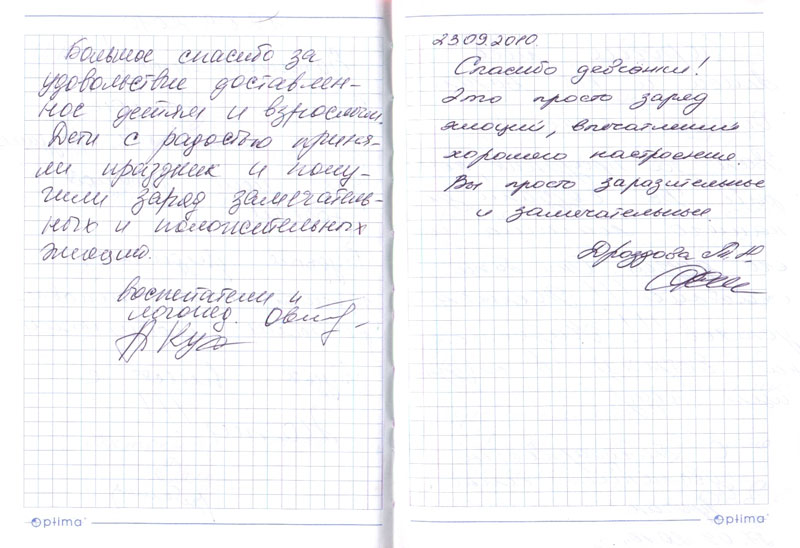 Большое спасибо за
удовольствие доставлен-
ное детям и взрослым.
Дети с радостью приня-
ли праздник и полу-
чили заряд замечатель-
ных и положительных
эмоций.
воспитатели и
логопед.
Optima
23.09.2010.
Спасибо девчонки!
Это просто заряд
эмоций, впечатлений
хорошего настроения.
Вы просто заразительные
и замечательные.
Дроздова М.Ю.
Optima